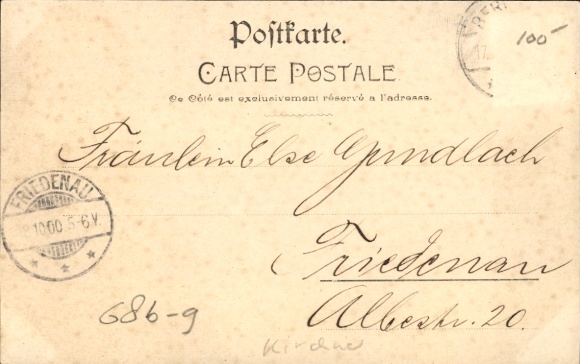 Postkarte.
CARTE POSTALE
Ce Côté est exclusivement réservé a l'adresse.
100-
Fräulein Else Gundlach
FRIEDENAU
10.00 5-6 V.
Friedenau
Albestr. 20.
686-9